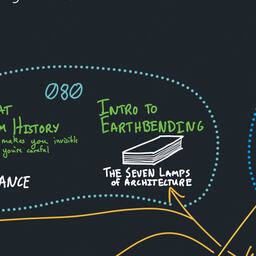 080
AT
M HISTORY
makes you invisible
you're careful
ANCE
INTRO TO
EARTHBENDING
THE SEVEN LAMPS
OF ARCHITECTURE